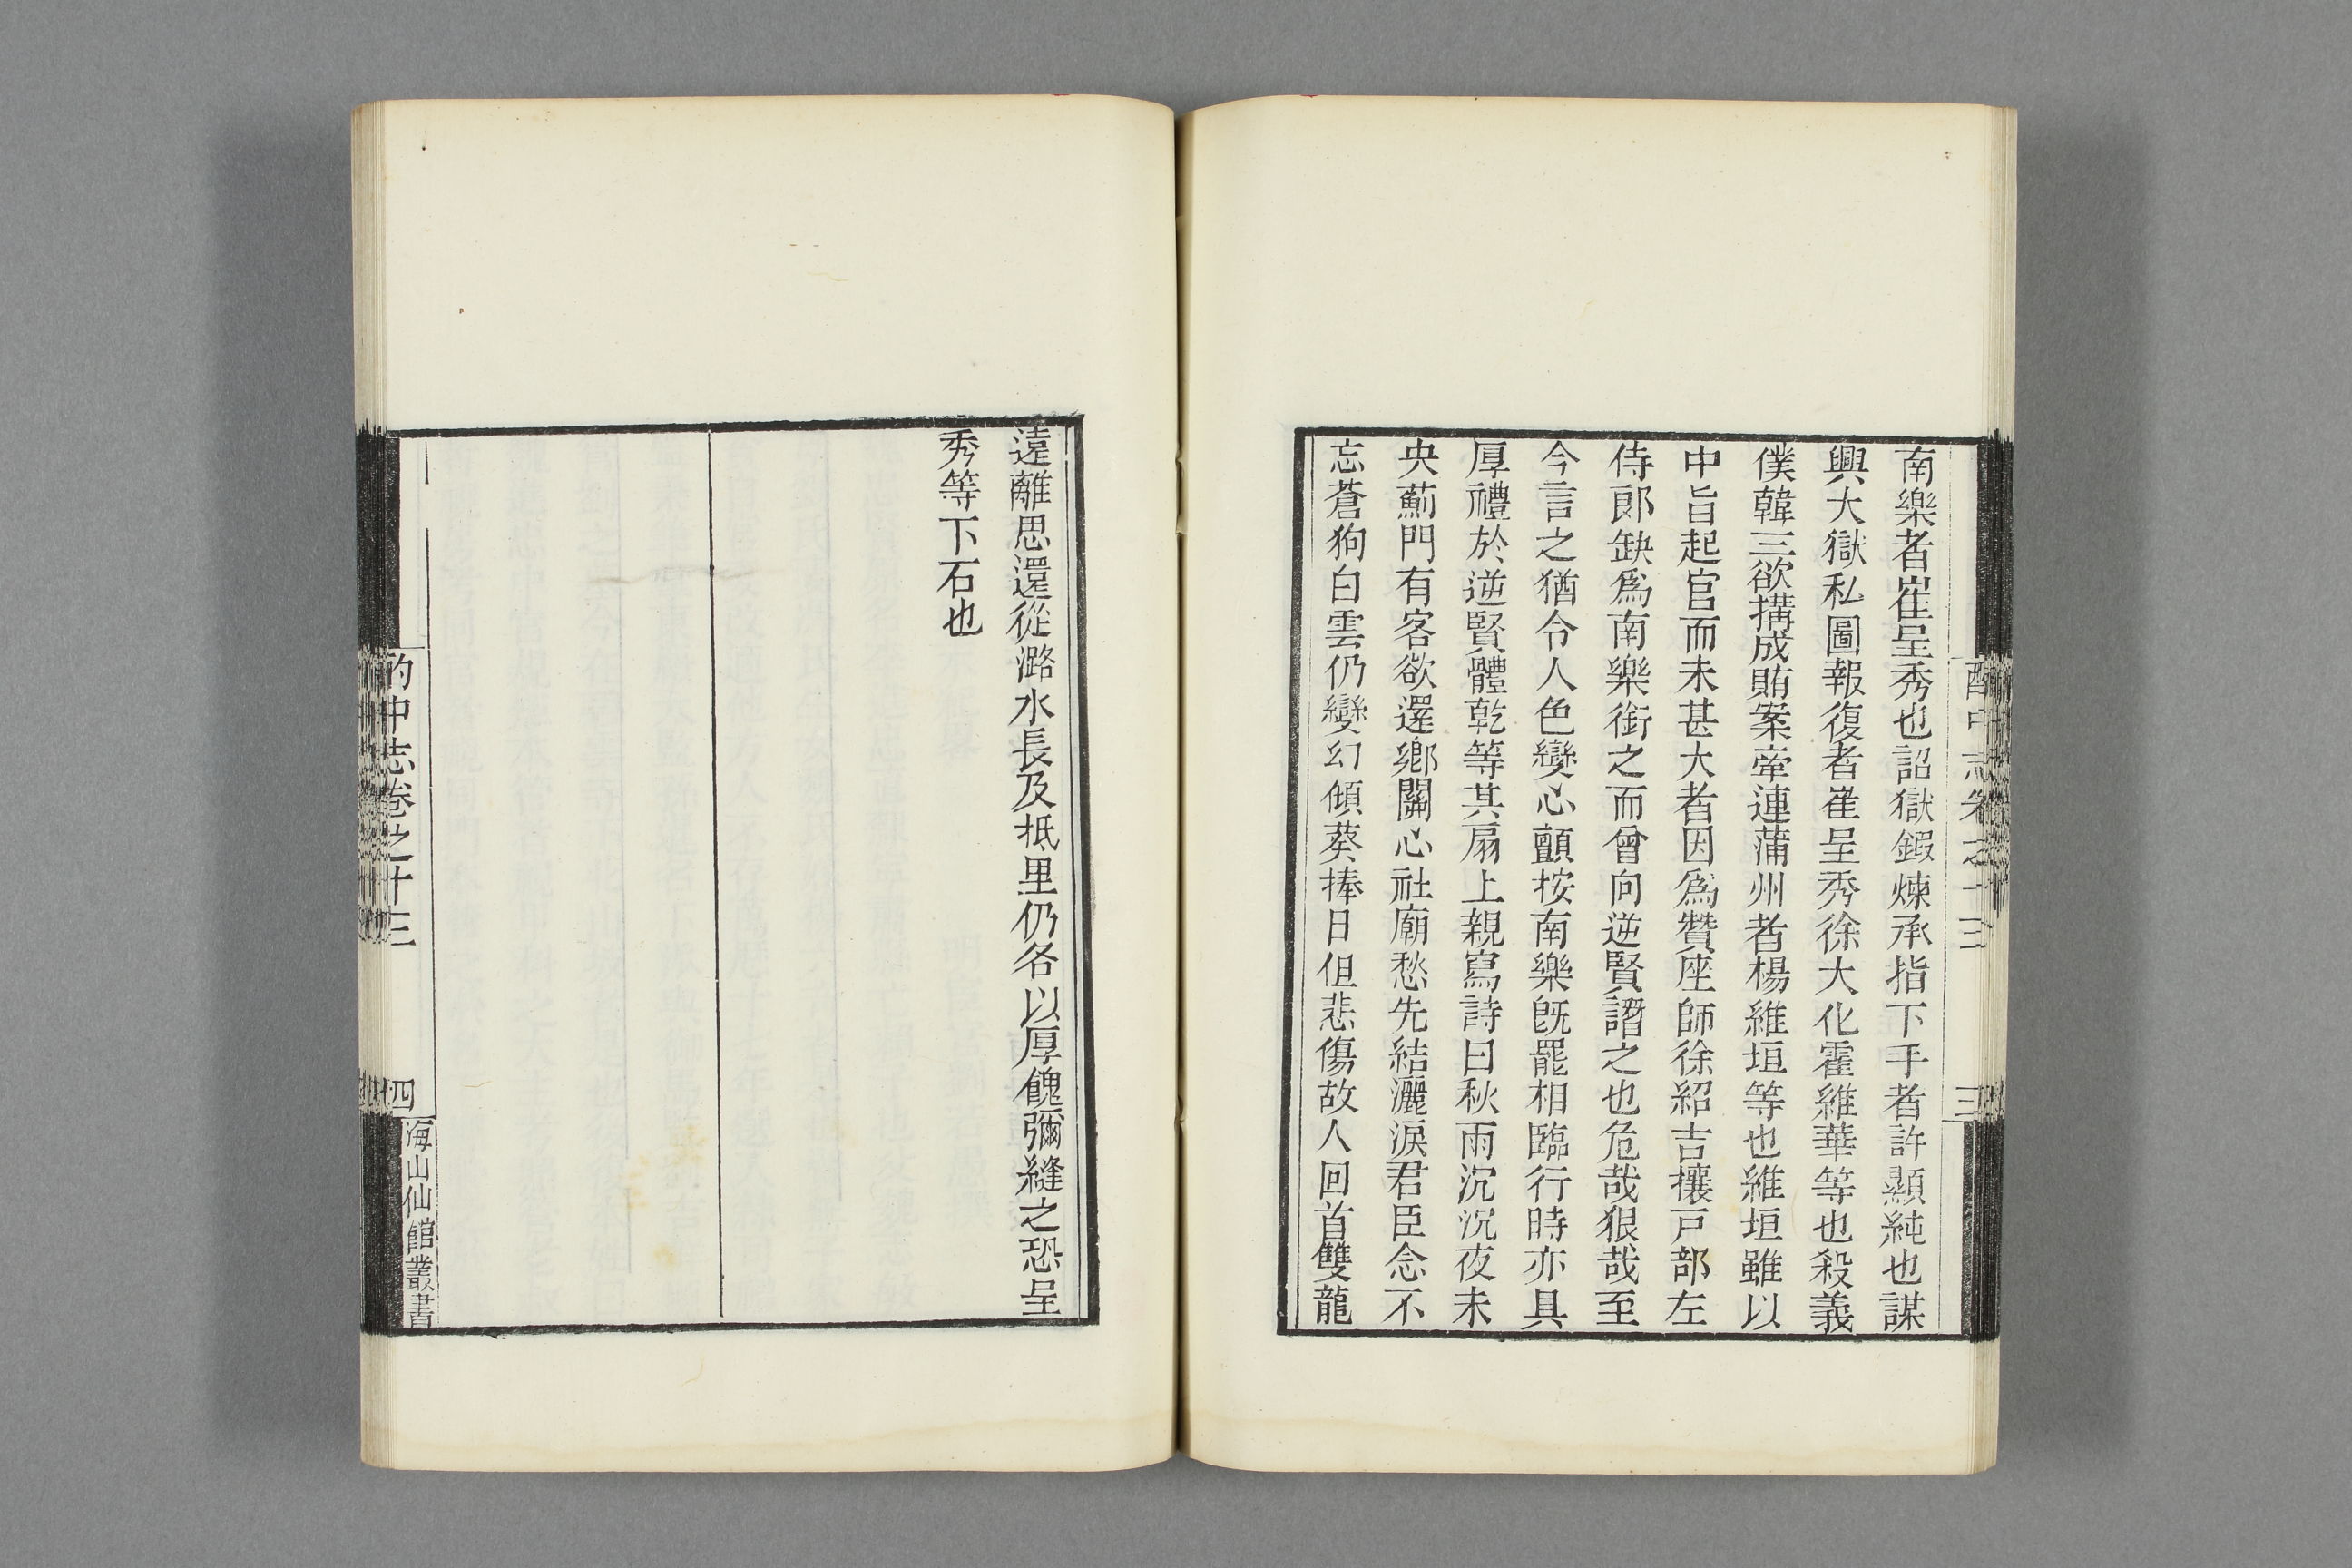 酌中志卷之十三
三
南樂者崔呈秀也詔獄鍜煉承指下手者許顯純也謀
興大獄私圖報復者崔呈秀徐大化霍維華等也殺義
僕韓三欲搆成賄案牽連蒲州者楊維垣等也維垣雖以
中旨起官而未甚大者因爲贊座師徐紹吉攘戸部左
侍郎缺爲南樂銜之而曾向逆賢譖之也危哉狠哉至
今言之猶令人色變心顫按南樂旣罷相臨行時亦具
厚禮於逆賢體乾等其扇上親寫詩曰秋雨沉沉夜未
央薊門有客欲還鄉關心社廟愁先結灑淚君臣念不
忘蒼狗白雲仍變幻傾葵捧日但悲傷故人回首雙龍
遠離思還從潞水長及抵里仍各以厚餽彌縫之恐呈
秀等下石也
酌中志卷之十三
四
海山仙館叢書